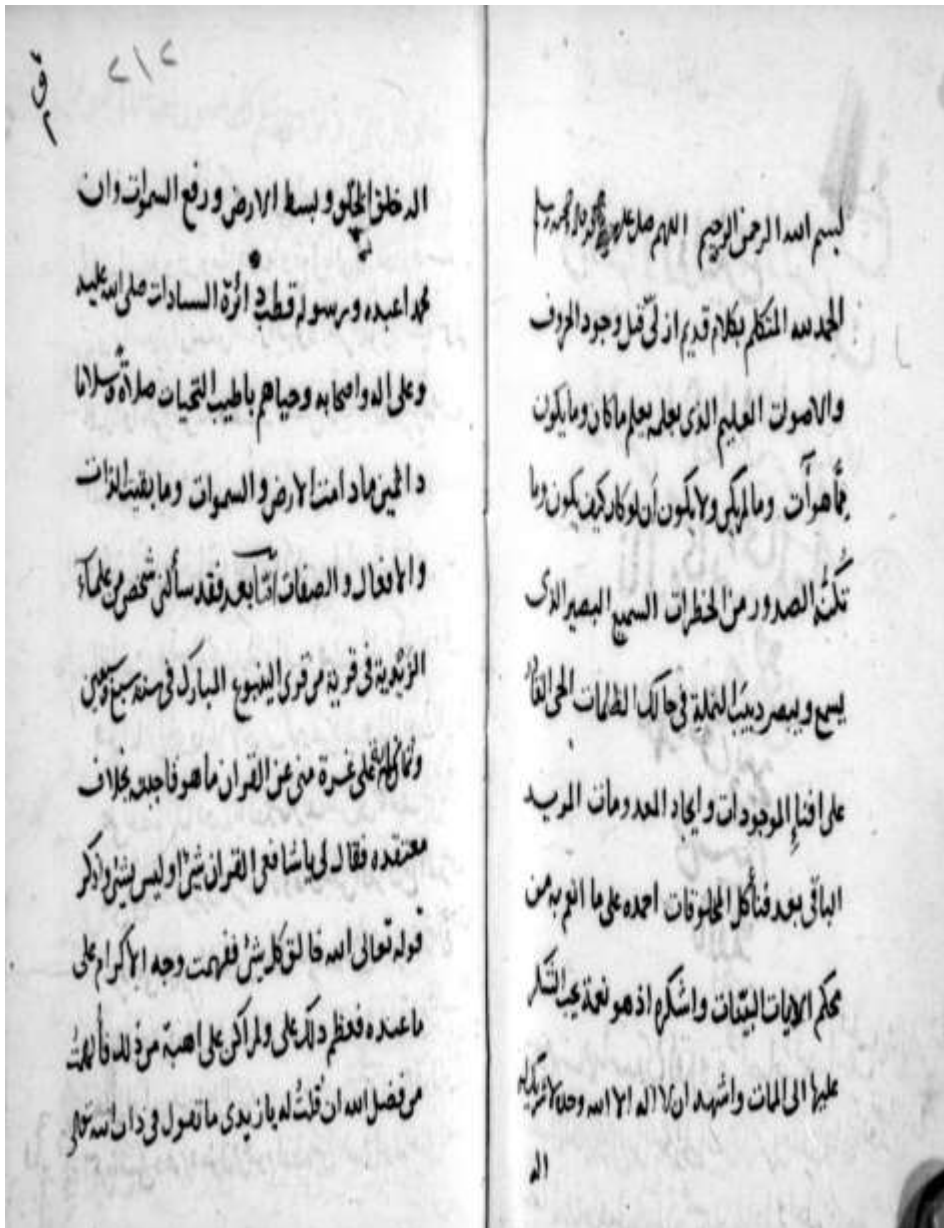 بسم الله الرحمن الرحيم اللهم صل على
الحمد لله المتكلم بكلام قديم ازلى قبل وجود الحروف
والاصوات العليم الذى بعلمه يعلم ماكان وما يكون
وما هوآت وما لم يكن ولا يكون أن لوكان كيف يكون وما
تكنُّه الصدور من الخطرات السميع البصير الذى
يسمع ويبصر دبيب النملة فى حالك الظلمات الحى القادر
على افناءِ الموجودات وايجاد المعدومات المريد
الباقى بعد فنأكل المخلوقات احمده على ما انعم به من
محكم الايات البيّنات واشكره اذ هو نعمة يجب الشكر
عليها الى الممات واشهد ان لا اله الا الله وحده لا شريك له
اله
٢١٢
اله خلق الخلق وبسط الارض ورفع السموات وان
محمدا عبده ورسوله قطب دائرة السادات صلى الله عليه
وعلى اله واصحابه وحياهم باطيب التحيات صلاةً وسلاما
دائمين مادامت الارض والسموات وما بقيت الذات
والافعال والصفات امّا بعد فقد سألنى شخص من علمآء
الزيدية فى قرية من قرى الينبوع المبارك فى سنة سبع وسبعين
على غرة منى عن القران ما هو فاجبته بخلاف
معتقده فقال لى ياشافعى القران شئ اوليس بشئ واذكر
قوله تعالى الله خالق كل شئ ففهمت وجه الاكرام على
ما عنده فعظم ذلك على ولم اكن على اهبة من ذلك فألهمت
من فضل الله ان قلتُ له يازيدى ما تقول فى ذات الله تعالى